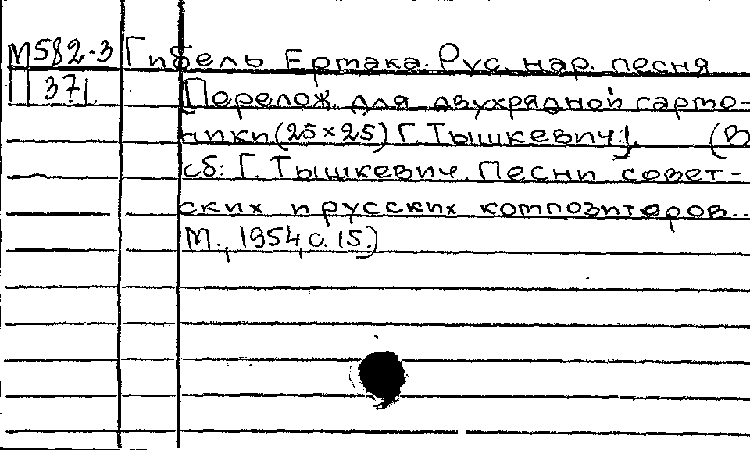 М582-3 Гибель Ермака. Рус. нар. песня
37 [Перелож. для двухрядной гармо-
ники (25×25) Г. Тышкевич]. (В
сб: Г. Тышкевич. Песни совет-
ских и русских композиторов..
М., 1954, с. 15.)